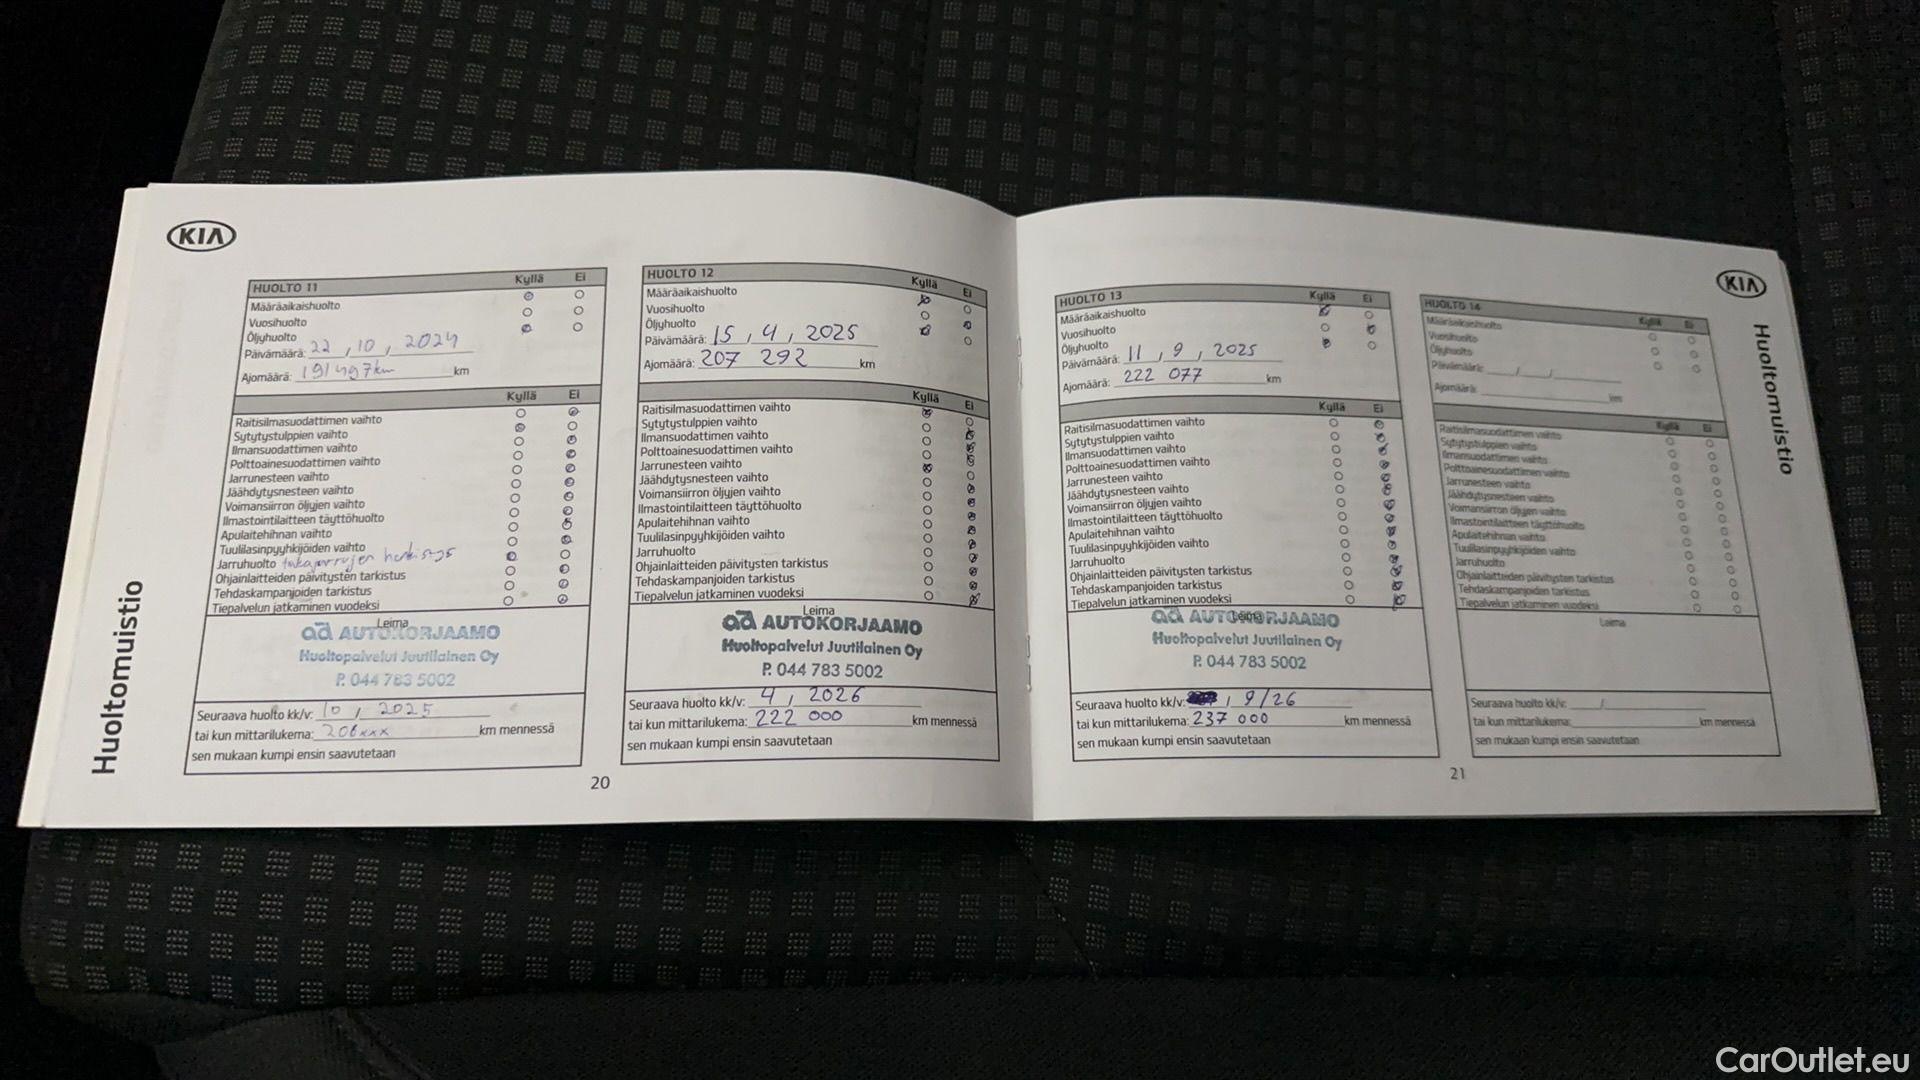 KIA
HUOLTO 11 Kyllä Ei
Määräaikaishuolto
Vuosihuolto
Öljyhuolto
Päivämäärä: 22 , 10 , 2024
Ajomäärä: 191497km km
Kyllä Ei
Raitisilmasuodattimen vaihto
Sytytystulppien vaihto
Ilmansuodattimen vaihto
Polttoainesuodattimen vaihto
Jarrunesteen vaihto
Jäähdytysnesteen vaihto
Voimansiirron öljyjen vaihto
Ilmastointilaitteen täyttöhuolto
Apulaitehihnan vaihto
Tuulilasinpyyhkijöiden vaihto
Jarruhuolto takajarrujen herkistys
Ohjainlaitteiden päivitysten tarkistus
Tehdaskampanjoiden tarkistus
Tiepalvelun jatkaminen vuodeksi
Leima
ad AUTOKORJAAMO
Huoltopalvelut Juutilainen Oy
P. 044 783 5002
Seuraava huolto kk/v: 10 , 2025
tai kun mittarilukema: 206xxx km mennessä
sen mukaan kumpi ensin saavutetaan
HUOLTO 12 Kyllä Ei
Määräaikaishuolto
Vuosihuolto
Öljyhuolto
Päivämäärä: 15 , 4 , 2025
Ajomäärä: 207 292 km
Kyllä Ei
Raitisilmasuodattimen vaihto
Sytytystulppien vaihto
Ilmansuodattimen vaihto
Polttoainesuodattimen vaihto
Jarrunesteen vaihto
Jäähdytysnesteen vaihto
Voimansiirron öljyjen vaihto
Ilmastointilaitteen täyttöhuolto
Apulaitehihnan vaihto
Tuulilasinpyyhkijöiden vaihto
Jarruhuolto
Ohjainlaitteiden päivitysten tarkistus
Tehdaskampanjoiden tarkistus
Tiepalvelun jatkaminen vuodeksi
Leima
ad AUTOKORJAAMO
Huoltopalvelut Juutilainen Oy
P. 044 783 5002
Seuraava huolto kk/v: 4 , 2026
tai kun mittarilukema: 222 000 km mennessä
sen mukaan kumpi ensin saavutetaan
Huoltomuistio
20
HUOLTO 13 Kyllä Ei
Määräaikaishuolto
Vuosihuolto
Öljyhuolto
Päivämäärä: 11 , 9 , 2025
Ajomäärä: 222 077 km
Kyllä Ei
Raitisilmasuodattimen vaihto
Sytytystulppien vaihto
Ilmansuodattimen vaihto
Polttoainesuodattimen vaihto
Jarrunesteen vaihto
Jäähdytysnesteen vaihto
Voimansiirron öljyjen vaihto
Ilmastointilaitteen täyttöhuolto
Apulaitehihnan vaihto
Tuulilasinpyyhkijöiden vaihto
Jarruhuolto
Ohjainlaitteiden päivitysten tarkistus
Tehdaskampanjoiden tarkistus
Tiepalvelun jatkaminen vuodeksi
Leima
ad AUTOKORJAAMO
Huoltopalvelut Juutilainen Oy
P. 044 783 5002
Seuraava huolto kk/v: , 9/26
tai kun mittarilukema: 237 000 km mennessä
sen mukaan kumpi ensin saavutetaan
KIA
HUOLTO 14 Kyllä Ei
Määräaikaishuolto
Vuosihuolto
Öljyhuolto
Päivämäärä: / /
Ajomäärä: km
Kyllä Ei
Raitisilmasuodattimen vaihto
Sytytystulppien vaihto
Ilmansuodattimen vaihto
Polttoainesuodattimen vaihto
Jarrunesteen vaihto
Jäähdytysnesteen vaihto
Voimansiirron öljyjen vaihto
Ilmastointilaitteen täyttöhuolto
Apulaitehihnan vaihto
Tuulilasinpyyhkijöiden vaihto
Jarruhuolto
Ohjainlaitteiden päivitysten tarkistus
Tehdaskampanjoiden tarkistus
Tiepalvelun jatkaminen vuodeksi
Leima
Seuraava huolto kk/v: /
tai kun mittarilukema: km mennessä
sen mukaan kumpi ensin saavutetaan
Huoltomuistio
21
CarOutlet.eu